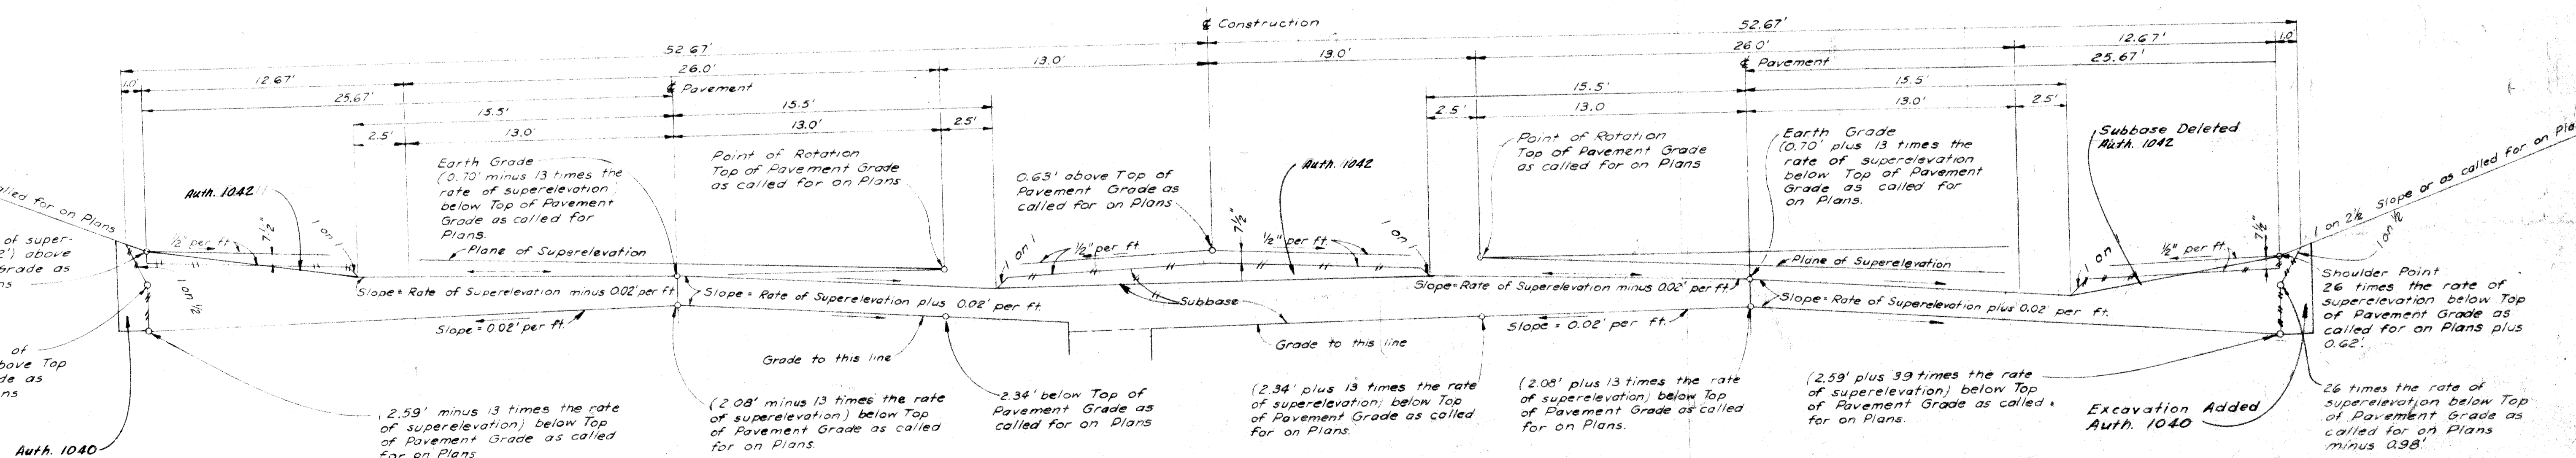 ℄ Construction
52.67'
52.67'
12.67'
1.0'
26.0'
13.0'
13.0'
26.0'
25.67'
1.0'
12.67'
℄ Pavement
℄ Pavement
25.67'
15.5'
15.5'
15.5'
15.5'
2.5'
13.0'
13.0'
2.5'
2.5'
13.0
13.0'
2.5'
called for on Plans
Auth. 1042
Earth Grade
(0.70' minus 13 times the
rate of superelevation)
below Top of Pavement
Grade as called for
Plans.
Point of Rotation
Top of Pavement Grade
as called for on Plans
0.63' above Top of
Pavement Grade as
called for on Plans
Auth. 1042
Point of Rotation
Top of Pavement Grade
as called for on Plans
Earth Grade
(0.70' plus 13 times the
rate of superelevation
below Top of Pavement
Grade as called for
on Plans.
Subbase Deleted
Auth. 1042
1 on 2½ Slope or as called for on Pla
of super-
2') above
Grade as
ns
½" per ft.
7½"
1 on 1
Plane of Superelevation
1 on 1
½" per ft.
7½"
½" per ft.
1 on 1
Plane of Superelevation
1 on 1
½" per ft.
7½"
1 on ½
1 on ½
Slope = Rate of Superelevation minus 0.02' per ft.
Slope = Rate of Superelevation plus 0.02' per ft.
Subbase
Slope=Rate of Superelevation minus 0.02' per ft.
Slope=Rate of Superelevation plus 0.02' per ft.
Slope = 0.02' per ft.
Slope = 0.02' per ft.
Grade to this line
Grade to this line
Shoulder Point
26 times the rate of
superelevation below Top
of Pavement Grade as
called for on Plans plus
0.62'.
of
above Top
de as
ns
Auth. 1040
(2.59' minus 13 times the rate
of superelevation) below Top
of Pavement Grade as called
for on Plans
(2.08' minus 13 times the rate
of superelevation) below Top
of Pavement Grade as called
for on Plans.
2.34' below Top of
Pavement Grade as
called for on Plans
(2.34' plus 13 times the rate
of superelevation) below Top
of Pavement Grade as called
for on Plans.
(2.08' plus 13 times the rate
of superelevation) below Top
of Pavement Grade as called
for on Plans.
(2.59' plus 39 times the rate
of superelevation) below Top
of Pavement Grade as called
for on Plans.
Excavation Added
Auth. 1040
26 times the rate of
superelevation below Top
of Pavement Grade as
called for on Plans
minus 0.98'